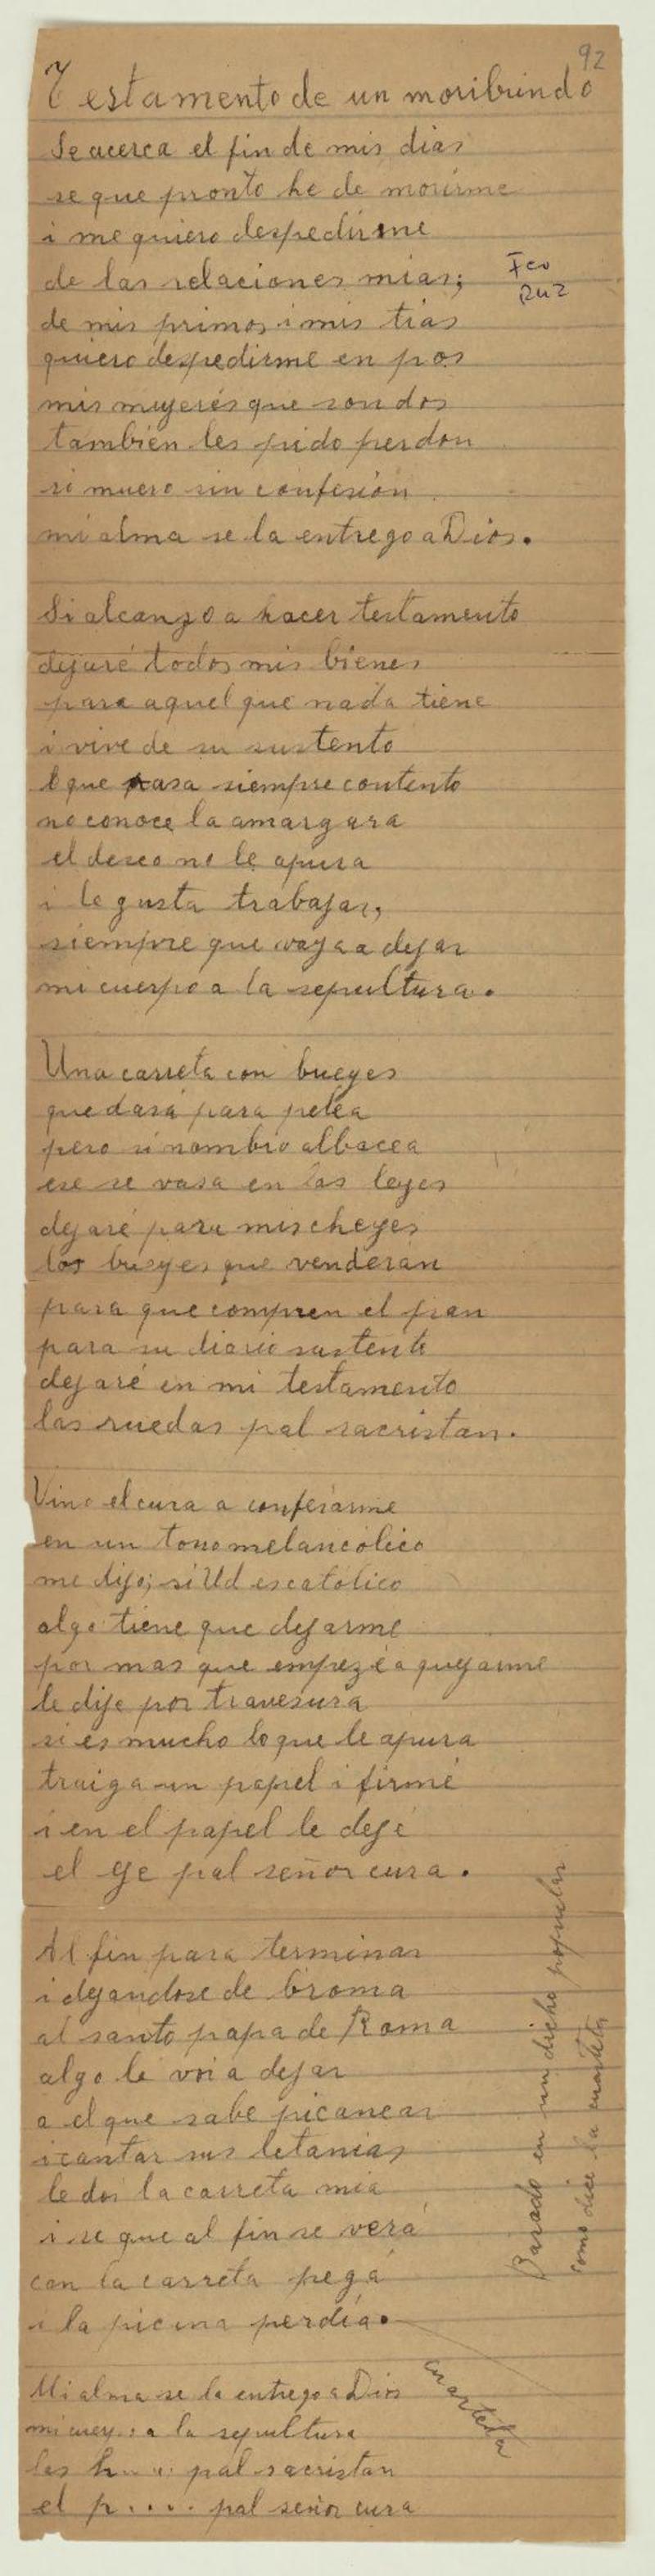 92
Testamento de un moribundo
Se acerca el fin de mis dias
se que pronto he de morirme
i me quiero despedirme
de las relaciones mias;
Fco
Ruz
de mis primos i mis tias
quiero despedirme en pos
mis mujeres que son dos
tambien les pido perdon
si muero sin confesión
mi alma se la entrego a Dios.
Si alcanzo a hacer testamento
dejaré todos mis bienes
para aquel que nada tiene
i vive de su sustento
que pasa siempre contento
no conoce la amargura
el deseo no le apura
i le gusta trabajar,
siempre que vaya a dejar
mi cuerpo a la sepultura.
Una carreta con bueyes
quedará para pelea
pero si nombro albacea
ese se vasa en las leyes
dejaré para mis cheyes
los bueyes que venderan
para que compren el pan
para su diario sustento
dejaré en mi testamento
las ruedas pal sacristan.
Vino el cura a confesarme
en un tono melancólico
me dijo; si Ud es católico
algo tiene que dejarme
por mas que empezé a quejarme
le dije por travesura
si es mucho lo que le apura
traiga un papel i firmé
i en el papel le dejé
el eje pal señor cura.
Al fin para terminar
i dejandose de broma
al santo papa de Roma
algo le voi a dejar
a el que sabe picanear
i cantar sus letanias
le doi la carreta mia
i se que al fin se verá
con la carreta pegá
i la picana perdía.
Basado en un dicho popular
como dice la cuarteta
cuarteta
Mi alma se la entrego a Dios
mi cuerpo a la sepultura
las h.... pal sacristan
el p.... pal señor cura